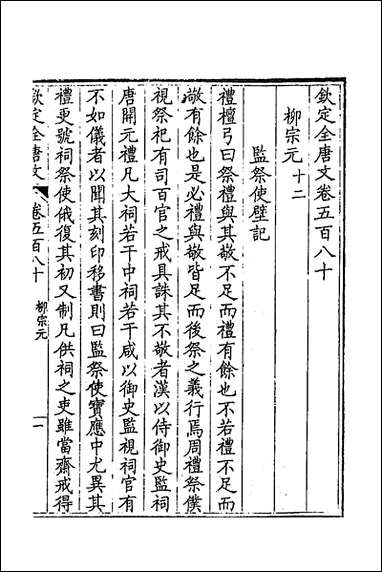 欽定全唐文卷五百八十
柳宗元 十二
監祭使壁記
禮檀弓曰祭禮與其敬不足而禮有餘也不若禮不足而
敬有餘也是必禮與敬皆足而後祭之義行焉周禮祭僕
視祭祀有司百官之戒具誅其不敬者漢以侍御史監祠
唐開元禮凡大祠若干中祠若干咸以御史監視祠官有
不如儀者以聞其刻印移書則曰監祭使寶應中尤異其
禮更號祠祭使俄復其初又制凡供祠之吏雖當齋戒得
欽定全唐文 卷五百八十 柳宗元 一